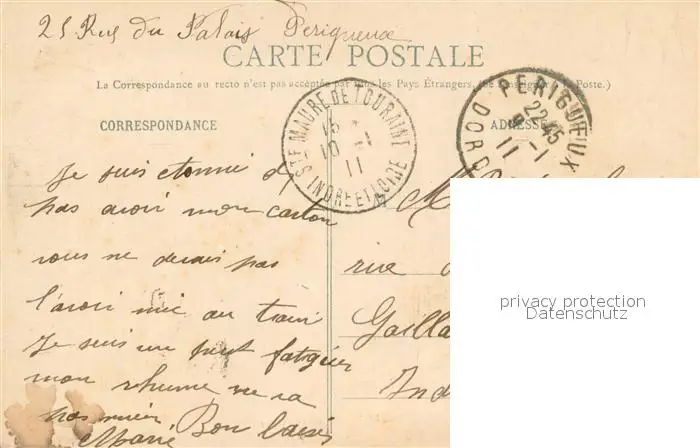 25 Rue du Palais Perigueux
CARTE POSTALE
La Correspondance au recto n'est pas acceptée par tous les Pays Étrangers, (se renseigner à la Poste.)
CORRESPONDANCE
ADRESSE
STE MAURE DE TOURAINE
15
10 -1
11
INDRE ET LOIRE
PERIGUEUX
22 45
9 -1
11
DORD
Je suis etonné de
pas avoir mon carton
vous ne devais pas
l'avoir mie au train
Je suis un peut fatiguer
mon rhume ne va
pas mieu Bon baisés
Marie
M
rue
Gailla
Ind
privacy protection
Datenschutz